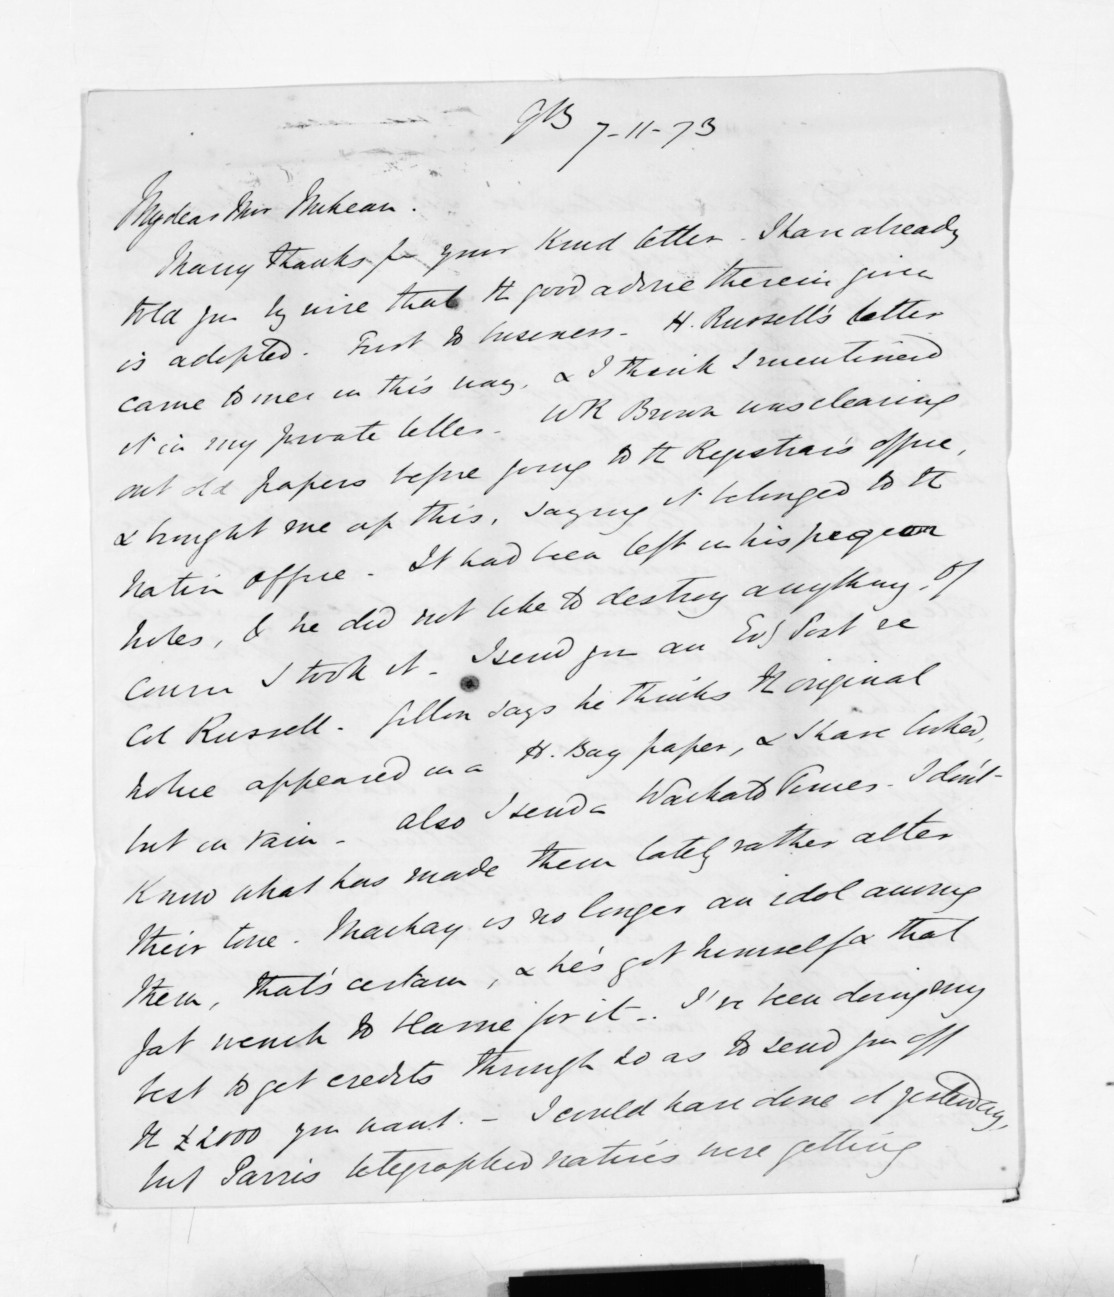 7-11-73
My dear Mr McLean.
Many thanks for your kind letter. I have already
told you by wire that the good advice therein given
is adopted. First to business. H. Russell's letter
came to me in this way, & I think I mentioned
it in my private letter. WR Brown was clearing
out old papers before going to the Registrar's office,
& brought me up this, saying it belonged to the
Native Office. It had been left in his pigeon
holes, & he did not like to destroy anything. Of
course I took it. I send you an Evg Post re
Col Russell. Gillon says he thinks the original
notice appeared in a H. Bay paper, & I have looked,
but in vain. Also I send a Waikato Times. I don't
know what has made them lately rather alter
their tone. Mackay is no longer an idol among
them, that's certain, & he's got himself & that
fat wench to blame for it. I've been doing my
best to get credits through so as to send you off
the £2000 you want. - I could have done it yesterday,
but Parris telegraphed natives were getting